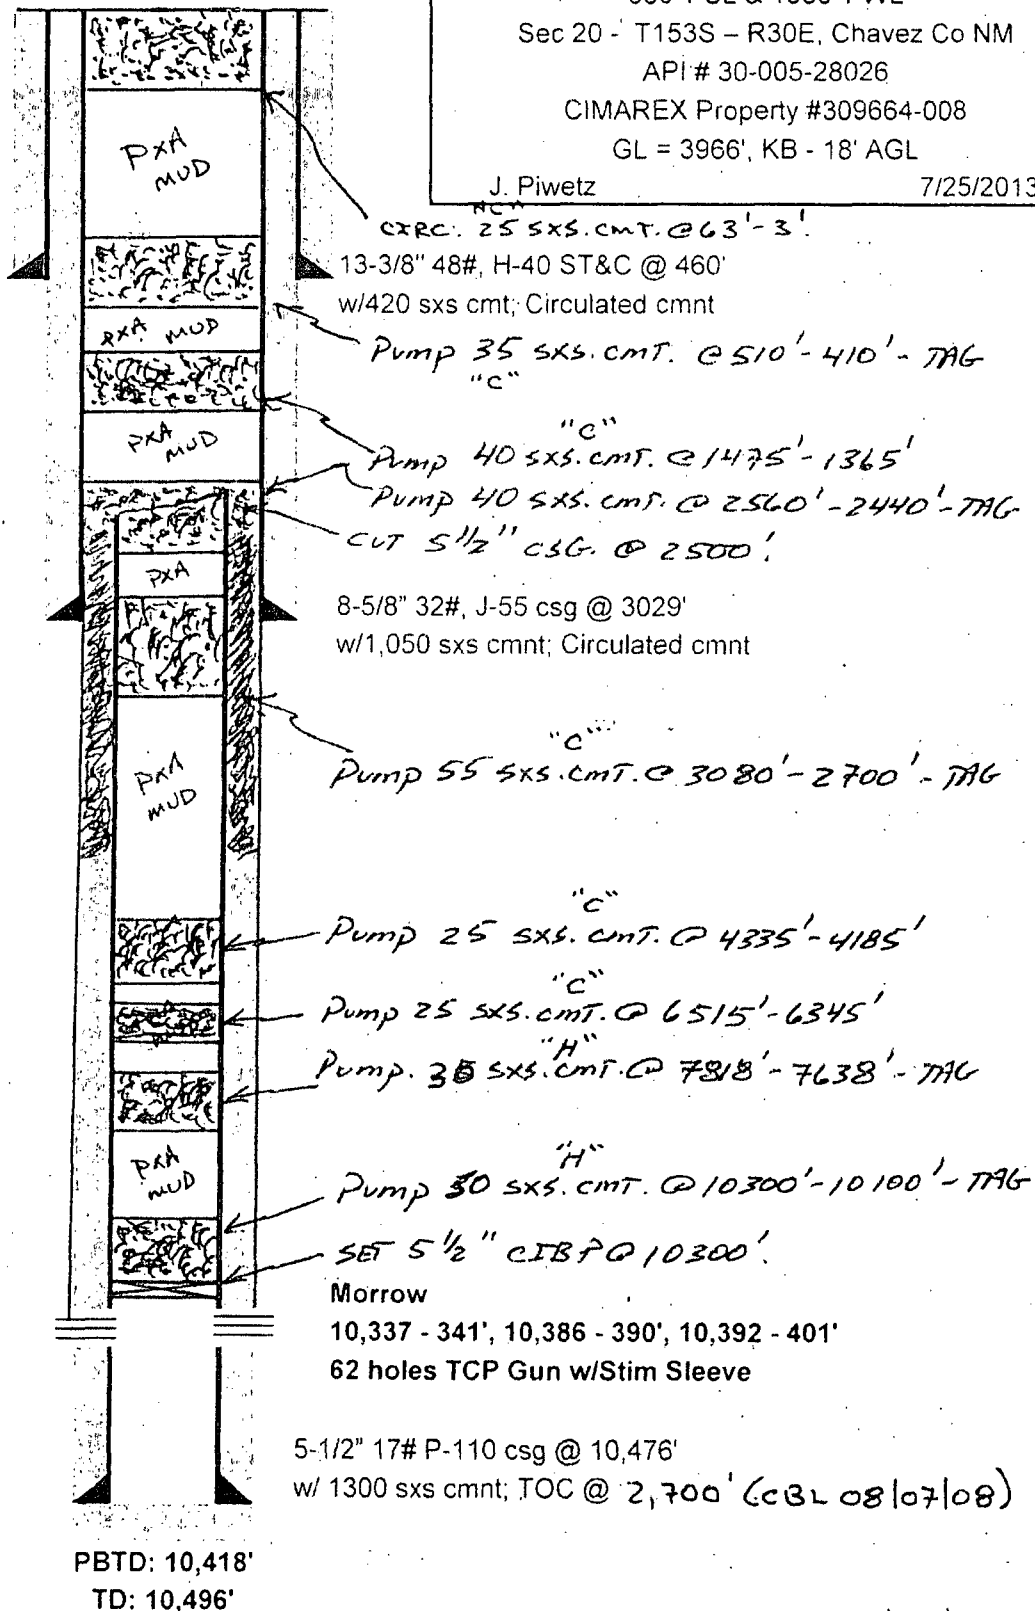 Sec 20 - T153S – R30E, Chavez Co NM
API # 30-005-28026
CIMAREX Property #309664-008
GL = 3966', KB - 18' AGL
J. Piwetz 7/25/2013
PXA MUD
"C"
CIRC. 25 SXS. CMT. @ 63'-3'.
13-3/8" 48#, H-40 ST&C @ 460'
w/420 sxs cmt; Circulated cmnt
PXA MUD
Pump 35 SXS. CMT. @ 510'-410' - TAG
"C"
PXA MUD
"C"
Pump 40 SXS. CMT. @ 1475'-1365'
Pump 40 SXS. CMT. @ 2560'-2440' - TAG
CUT 5 1/2" CSG. @ 2500'.
PXA
8-5/8" 32#, J-55 csg @ 3029'
w/1,050 sxs cmnt; Circulated cmnt
"C"
Pump 55 SXS. CMT. @ 3080'-2700' - TAG
PXA MUD
"C"
Pump 25 SXS. CMT. @ 4335'-4185'
"C"
Pump 25 SXS. CMT. @ 6515'-6345'
"H"
Pump. SXS. CMT. @ 7818'-7638' - TAG
PXA MUD
"H"
Pump 30 SXS. CMT. @ 10300'-10100' - TAG
SET 5 1/2" CIBP @ 10300'.
Morrow
10,337 - 341', 10,386 - 390', 10,392 - 401'
62 holes TCP Gun w/Stim Sleeve
5-1/2" 17# P-110 csg @ 10,476'
w/ 1300 sxs cmnt; TOC @ 2,700' (CBL 08/07/08)
PBTD: 10,418'
TD: 10,496'